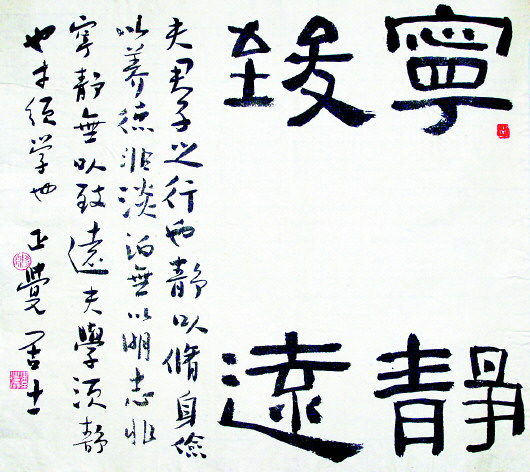 寧靜
致遠
夫君子之行也静以脩身儉
以養德非淡泊無以明志非
寧静無以致遠夫學須静
也才須学也 正覺居士